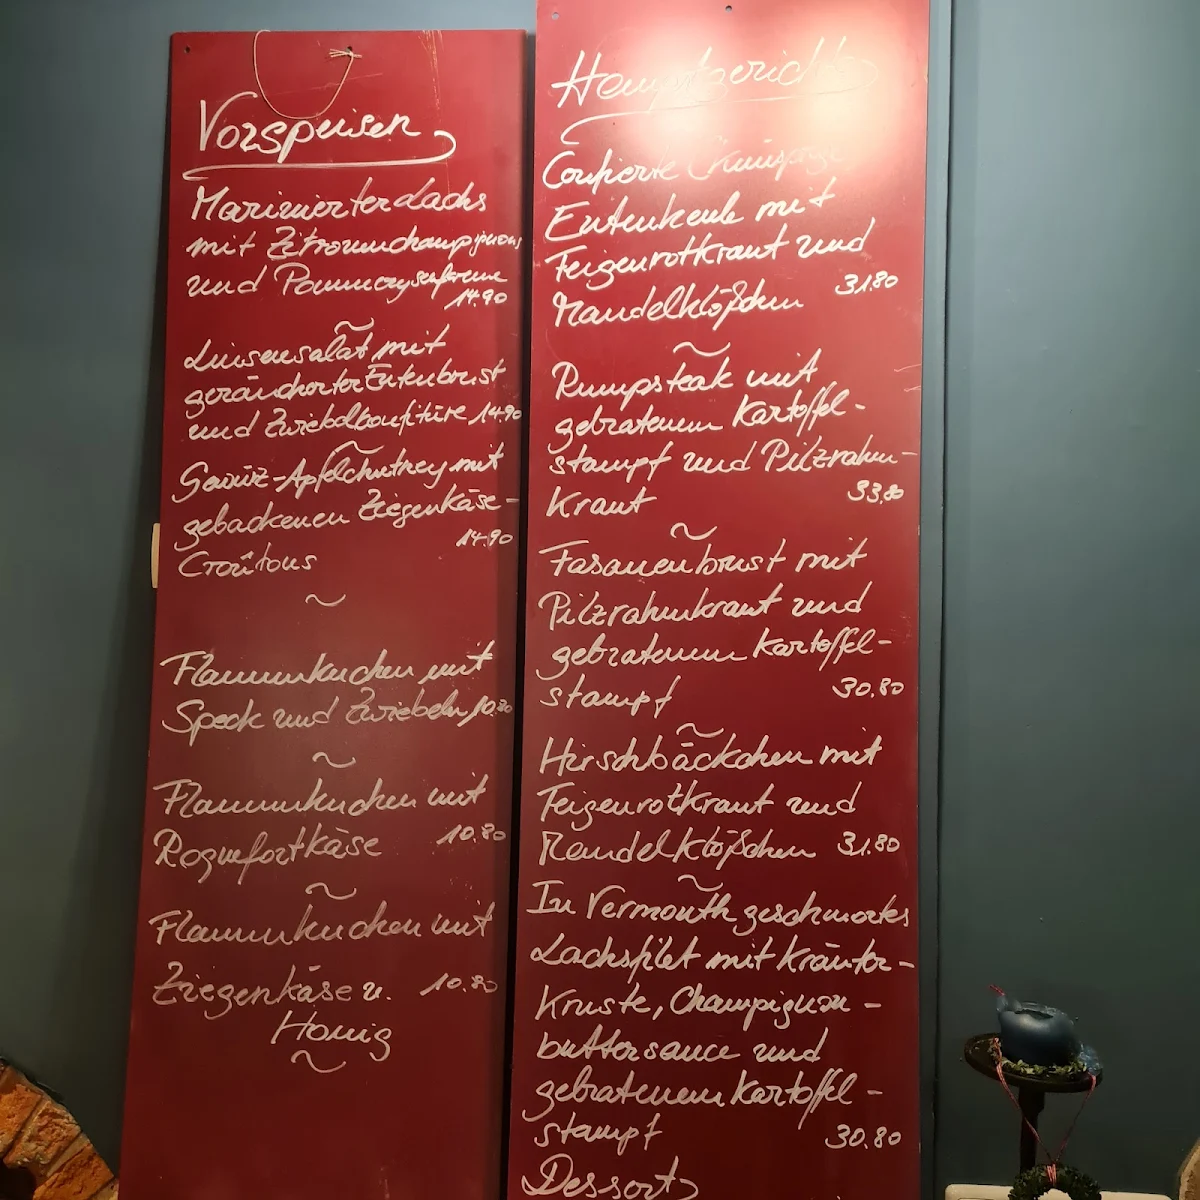 Vorspeisen
Marinierter Lachs
mit Zitronenchampignons
und Pommerysenfcreme
14.90
~
Linsensalat mit
geräucherter Entenbrust
und Zwiebelkonfitüre 14.90
~
Gewürz-Apfelchutney mit
gebackenen Ziegenkäse-
14.90
Croûtons
~
Flammkuchen mit
Speck und Zwiebeln 10.80
~
Flammkuchen mit
Roquefortkäse 10.80
~
Flammkuchen mit
Ziegenkäse u. 10.80
Honig
~
Hauptgerichte
Confierte knusprige
Entenkeule mit
Feigenrotkraut und
Mandelklößchen 31.80
~
Rumpsteak mit
gebratenem Kartoffel-
stampf und Pilzrahm-
kraut 33.80
~
Fasanenbrust mit
Pilzrahmkraut und
gebratenem Kartoffel-
stampf 30.80
~
Hirschbäckchen mit
Feigenrotkraut und
Mandelklößchen 31.80
~
In Vermouth geschmortes
Lachsfilet mit Kräuter-
kruste, Champignon-
buttersauce und
gebratenem Kartoffel-
stampf 30.80
Dessert